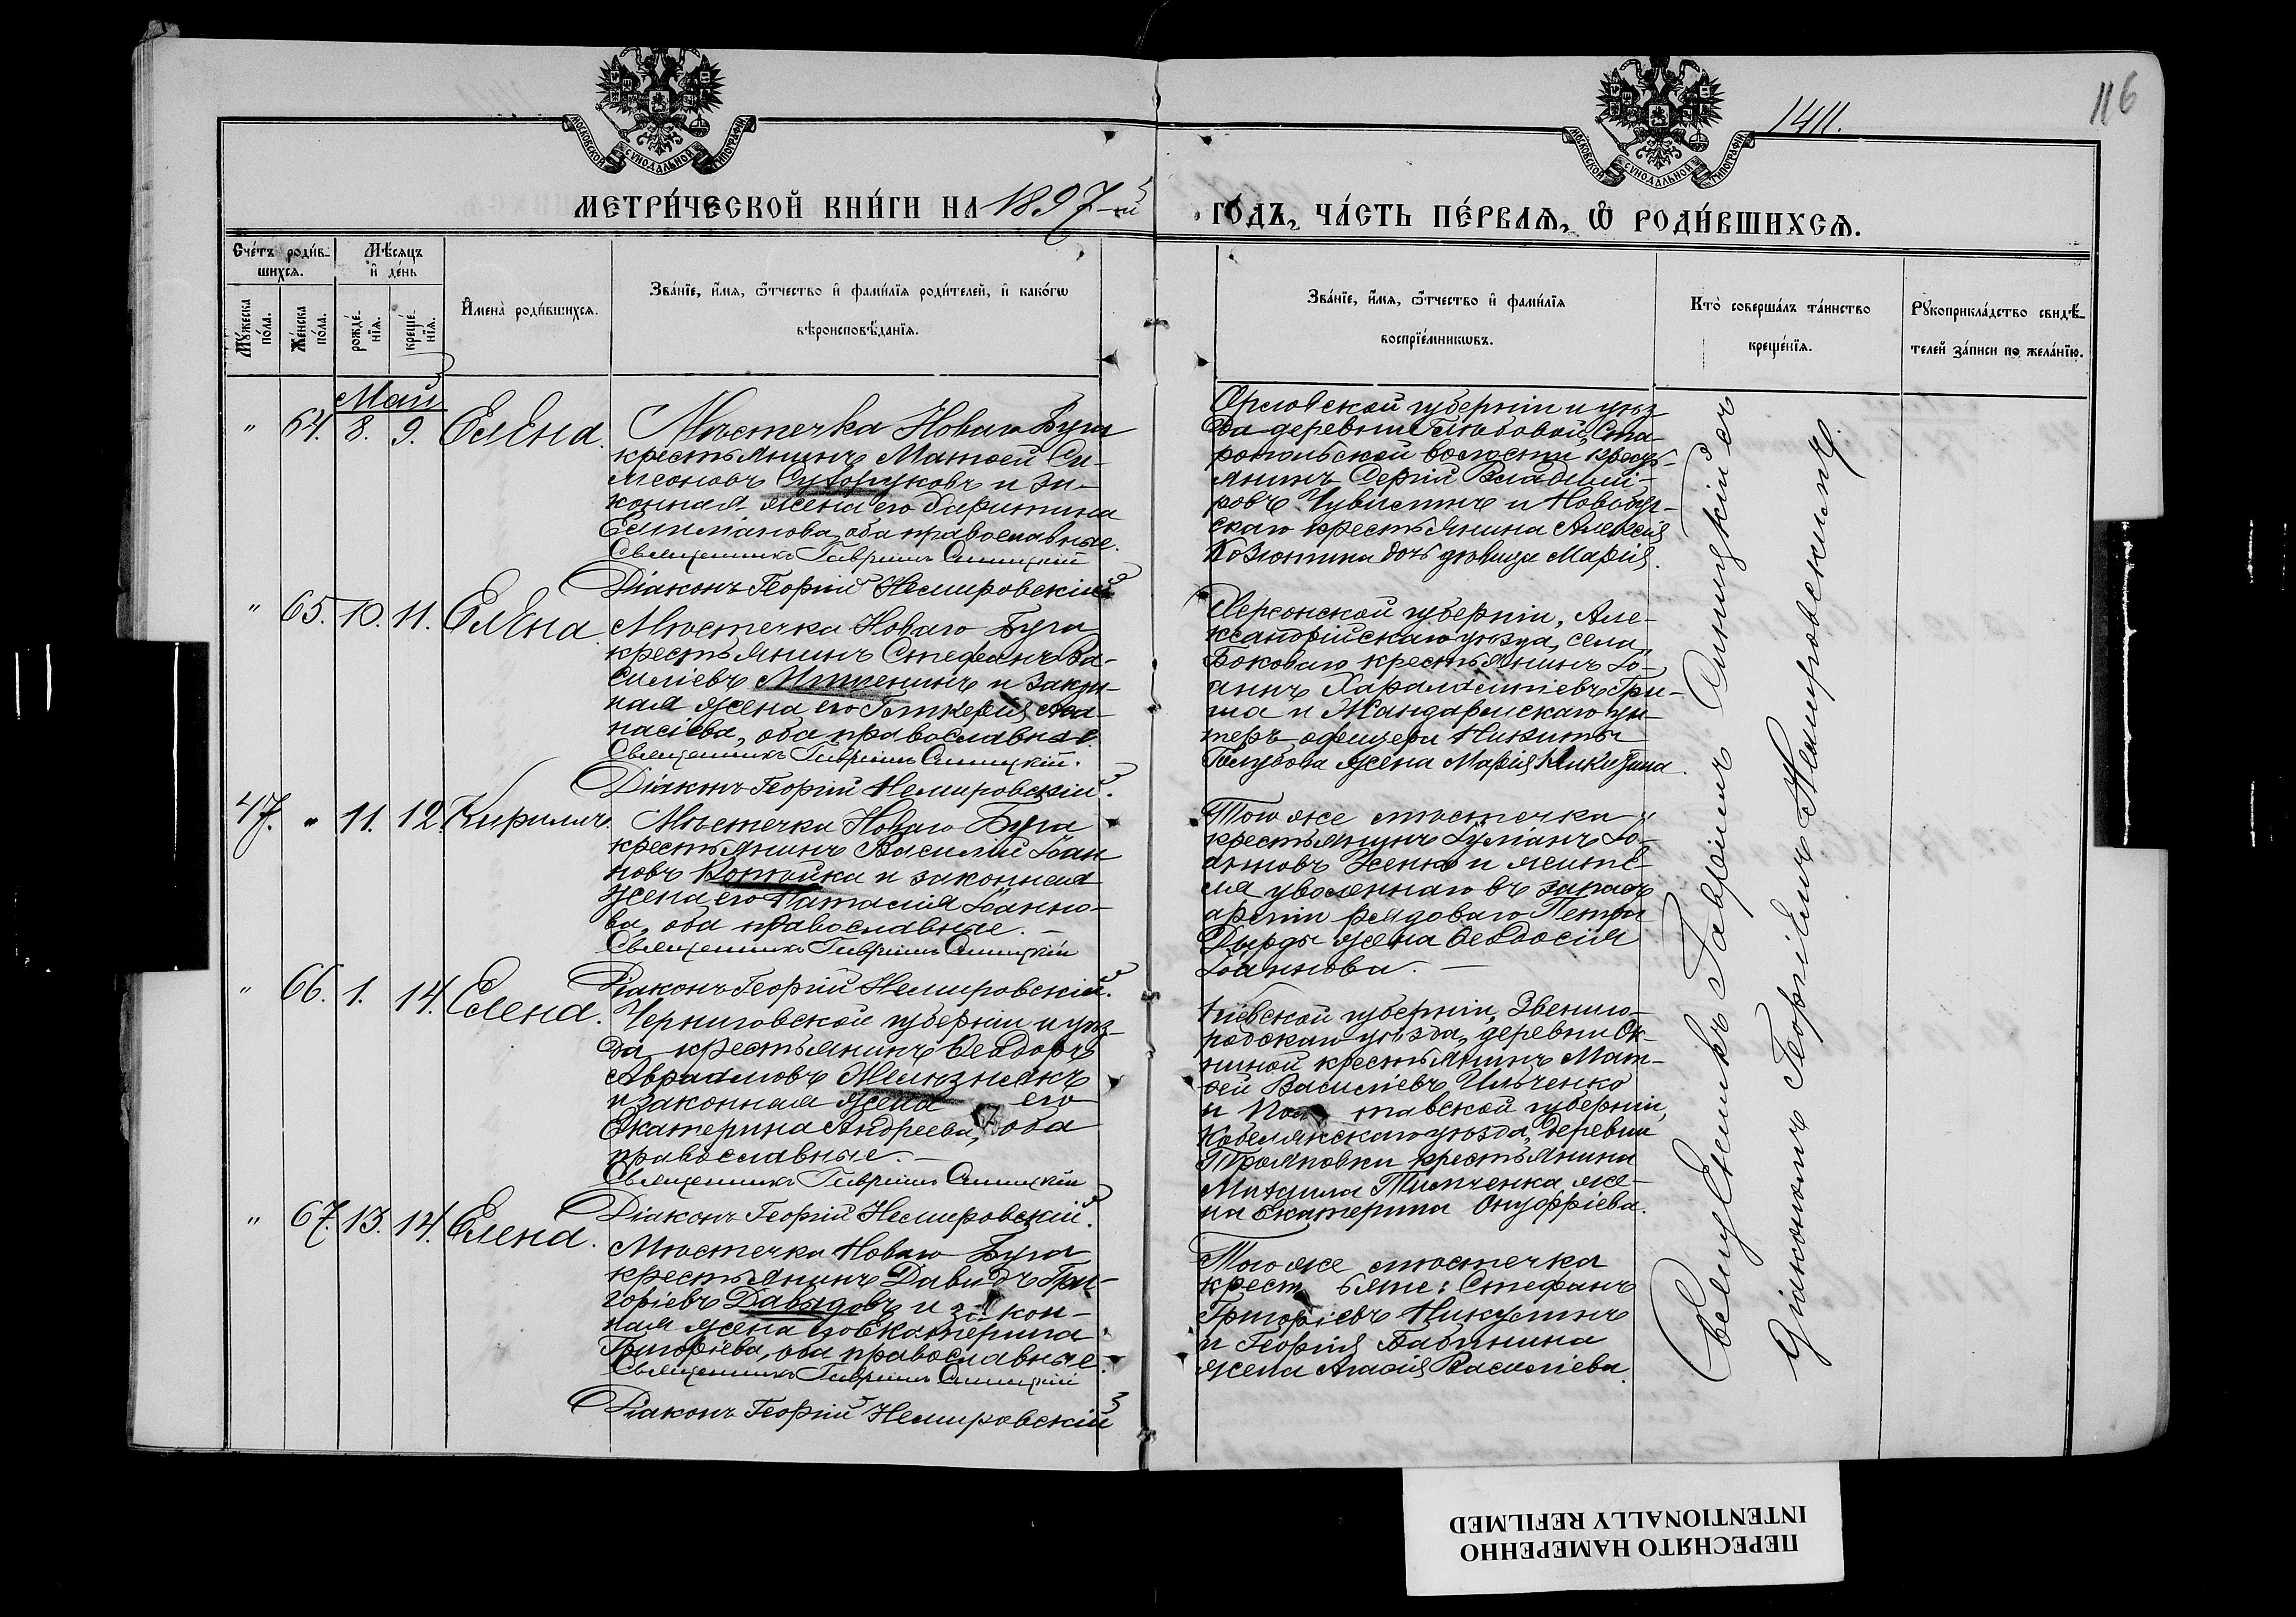 116
1411.
МОСКОВСКОЙ СѴНОДАЛЬНОЙ ТИПОГРАФІИ
МОСКОВСКОЙ СѴНОДАЛЬНОЙ ТИПОГРАФІИ
МЕТРИ́ЧЕСКОЙ КНИ́ГИ НА 1897-й
ГО́ДЪ, ЧА́СТЬ ПЕ́РВАЯ, Ѡ РОДИ́ВШИХСЯ.
Сче́тъ роди́в-
шихся.
Мѣ́сяцъ
и де́нь
Му́жеска по́ла.
Же́нска по́ла.
рожде́-
нія.
креще́-
нія.
Имена̀ роди́вшихся.
Зва́ніе, и́мя, ѻ́тчество и фами́лія роди́телей, и како́гѡ
вѣроисповѣ́данія.
Зва́ніе, и́мя, ѻ́тчество и фами́лія
воспріе́мникѡвъ.
Кто̀ соверша́лъ та́инство
креще́нія.
Рукоприкла́дство свидѣ́-
телей за́писи по жела́нію.
Май
" 64. 8. 9. Елена.
Мѣстечка Новаго Буга
крестьянинъ Матѳей Си-
меоновъ Сухоруковъ и за-
конная жена его Харитина
Емиліанова, оба православные.
Священникъ Гавріилъ
Діаконъ Георгій Немировскій
Орловской губерніи и уѣз-
да деревни
волости кресть-
янинъ Сергій Владимі-
ровъ и Новобуг-
скаго крестьянина Алексія
Козютина дочь дѣвица Марія.
" 65. 10. 11. Елена
Мѣстечка Новаго Буга
крестьянинъ Стефанъ Ва-
силіевъ и закон-
ная жена его Гликерія Аѳа-
насіева, оба православные.
Священникъ Гавріилъ
Діаконъ Георгій Немировскій.
Херсонской губерніи, Але-
ксандрійскаго уѣзда, села
Боковаго крестьянинъ Іо-
аннъ Харалампіевъ Гри-
ша и Жандармскаго ун-
теръ офицера Никиты
Голубова жена Марія Никитина.
47. " 11. 12. Кириллъ.
Мѣстечка Новаго Буга
крестьянинъ Василій Іоан-
новъ Копейка и законная
жена его Наталія Іоанно-
ва, оба православные. -
Священникъ Гавріилъ
Діаконъ Георгій Немировскій.
Того же мѣстечка
крестьянинъ Іуліанъ Іо-
анновъ и жите-
ля уволеннаго въ запасъ
арміи рядоваго Петра
жена Ѳеодосія
Іоаннова. -
" 66. 1. 14. Елена.
Черниговской губерніи и уѣз-
да крестьянинъ Ѳеодоръ
Авраамовъ Желѣзнякъ
и законная жена его
Екатерина Андреева, оба
православные. -
Священникъ Гавріилъ
Діаконъ Георгій Немировскій.
Кіевской губерніи, Звениго-
родскаго уѣзда, деревни Ок-
ниной крестьянинъ Мат-
ѳей Василіевъ Ильченко
и Пол тавской губерніи,
Кобелякскаго уѣзда, деревни
Трояновки крестьянина
Михаила Тимченка же-
на Екатерина Онуфріева.
" 67. 13. 14. Елена.
Мѣстечка Новаго Буга
крестьянинъ Давидъ Гри-
горіевъ Давыдовъ и за кон-
ная жена его Екатерина
Григоріева, оба православные.
Священникъ Гавріилъ
Діаконъ Георгій Немировскій
Того же мѣстечка
крест ьяне: Стефанъ
Григоріевъ Никулинъ
и Георгія Бабинина
жена Агаѳія Василіева.
Священникъ Гавріилъ
Діакономъ Георгіемъ Немировскимъ.
ПЕРЕСНЯТО НАМЕРЕННО
INTENTIONALLY REFILMED